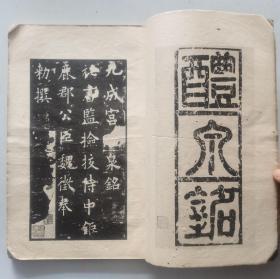 醴泉銘
九成宮
泉銘
祕書監撿挍侍中鉅
鹿郡公臣魏徵奉
勑撰